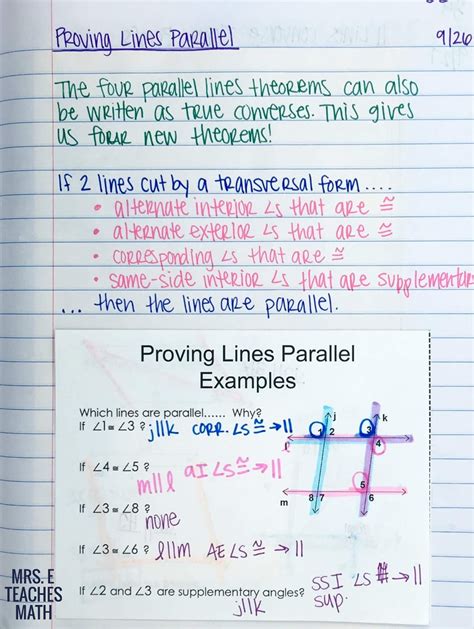 Proving Lines Parallel 9/26
The four parallel lines theorems can also
be written as true converses. This gives
us four new theorems!
If 2 lines cut by a transversal form....
• alternate interior ∠s that are ≅
• alternate exterior ∠s that are ≅
• corresponding ∠s that are ≅
• same-side interior ∠s that are supplementary
... then the lines are parallel.
Proving Lines Parallel
Examples
Which lines are parallel...... Why?
If ∠1≅ ∠3 ? j||k corr. ∠s ≅ → ||
If ∠4 ≅ ∠5 ? m||l AI ∠s ≅ → ||
If ∠3 ≅ ∠8 ? none
If ∠3 ≅ ∠6 ? l||m AE ∠s ≅ → ||
If ∠2 and ∠3 are supplementary angles? j||k SSI ∠s sup. → ||
j k
1 2 3
l 4
5
m 8 7 6
MRS. E
TEACHES
MATH